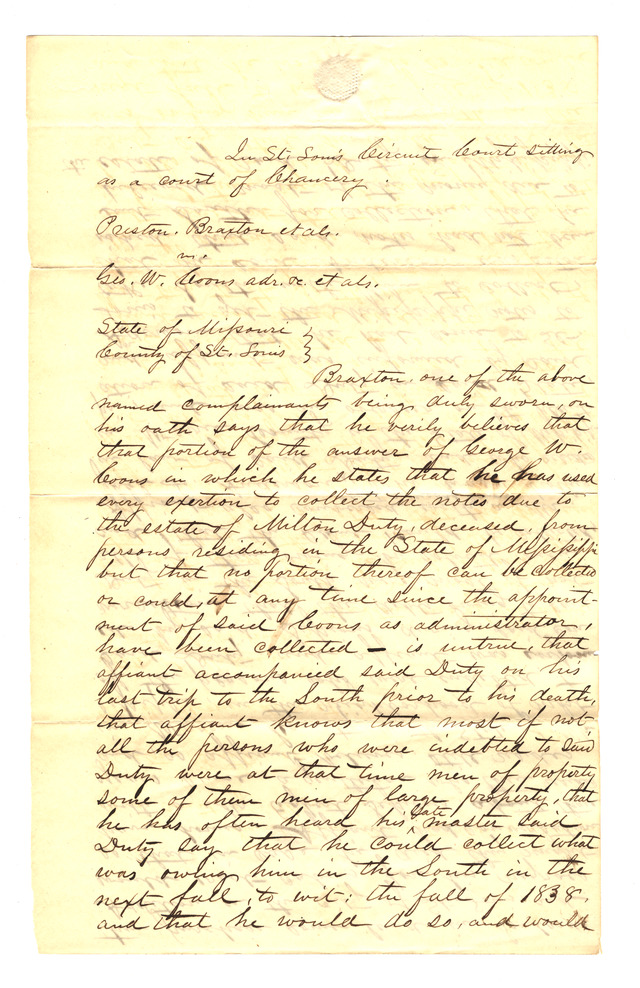 In St. Louis Circuit Court sitting
as a court of Chancery.
Preston, Braxton et als.
vs.
Geo. W. Coons adr. &c. et als.
State of Missouri }
County of St. Louis }
Braxton, one of the above
named complainants being duly sworn, on
his oath says that he verily believes that
that portion of the answer of George W.
Coons in which he states that he has used
every exertion to collect the notes due to
the estate of Milton Duty, deceased, from
persons residing in the State of Mississippi
but that no portion thereof can be collected
or could, at any time since the appoint-
ment of said Coons as administrator,
have been collected – is untrue, that
affiant accompanied said Duty on his
last trip to the South prior to his death,
that affiant knows that most if not
all the persons who were indebted to said
Duty were at that time men of property
some of them men of large property, that
he has often heard his late master said
Duty say that he could collect what
was owing him in the South in the
next fall, to wit: the fall of 1838,
and that he would do so, and would